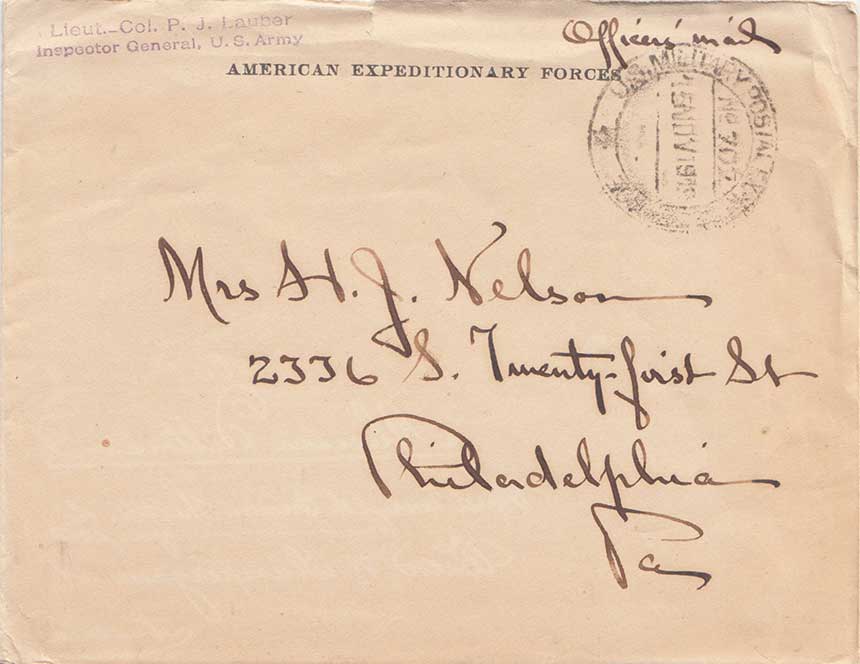 Lieut.-Col. P. J. Lauber
Inspector General, U. S. Army
Officers' mail
AMERICAN EXPEDITIONARY FORCES
U.S. MILITARY POSTAL
NOV 1918
No 705
Mrs H. J. Nelson
2336 S. Twenty-first St
Philadelphia
Pa